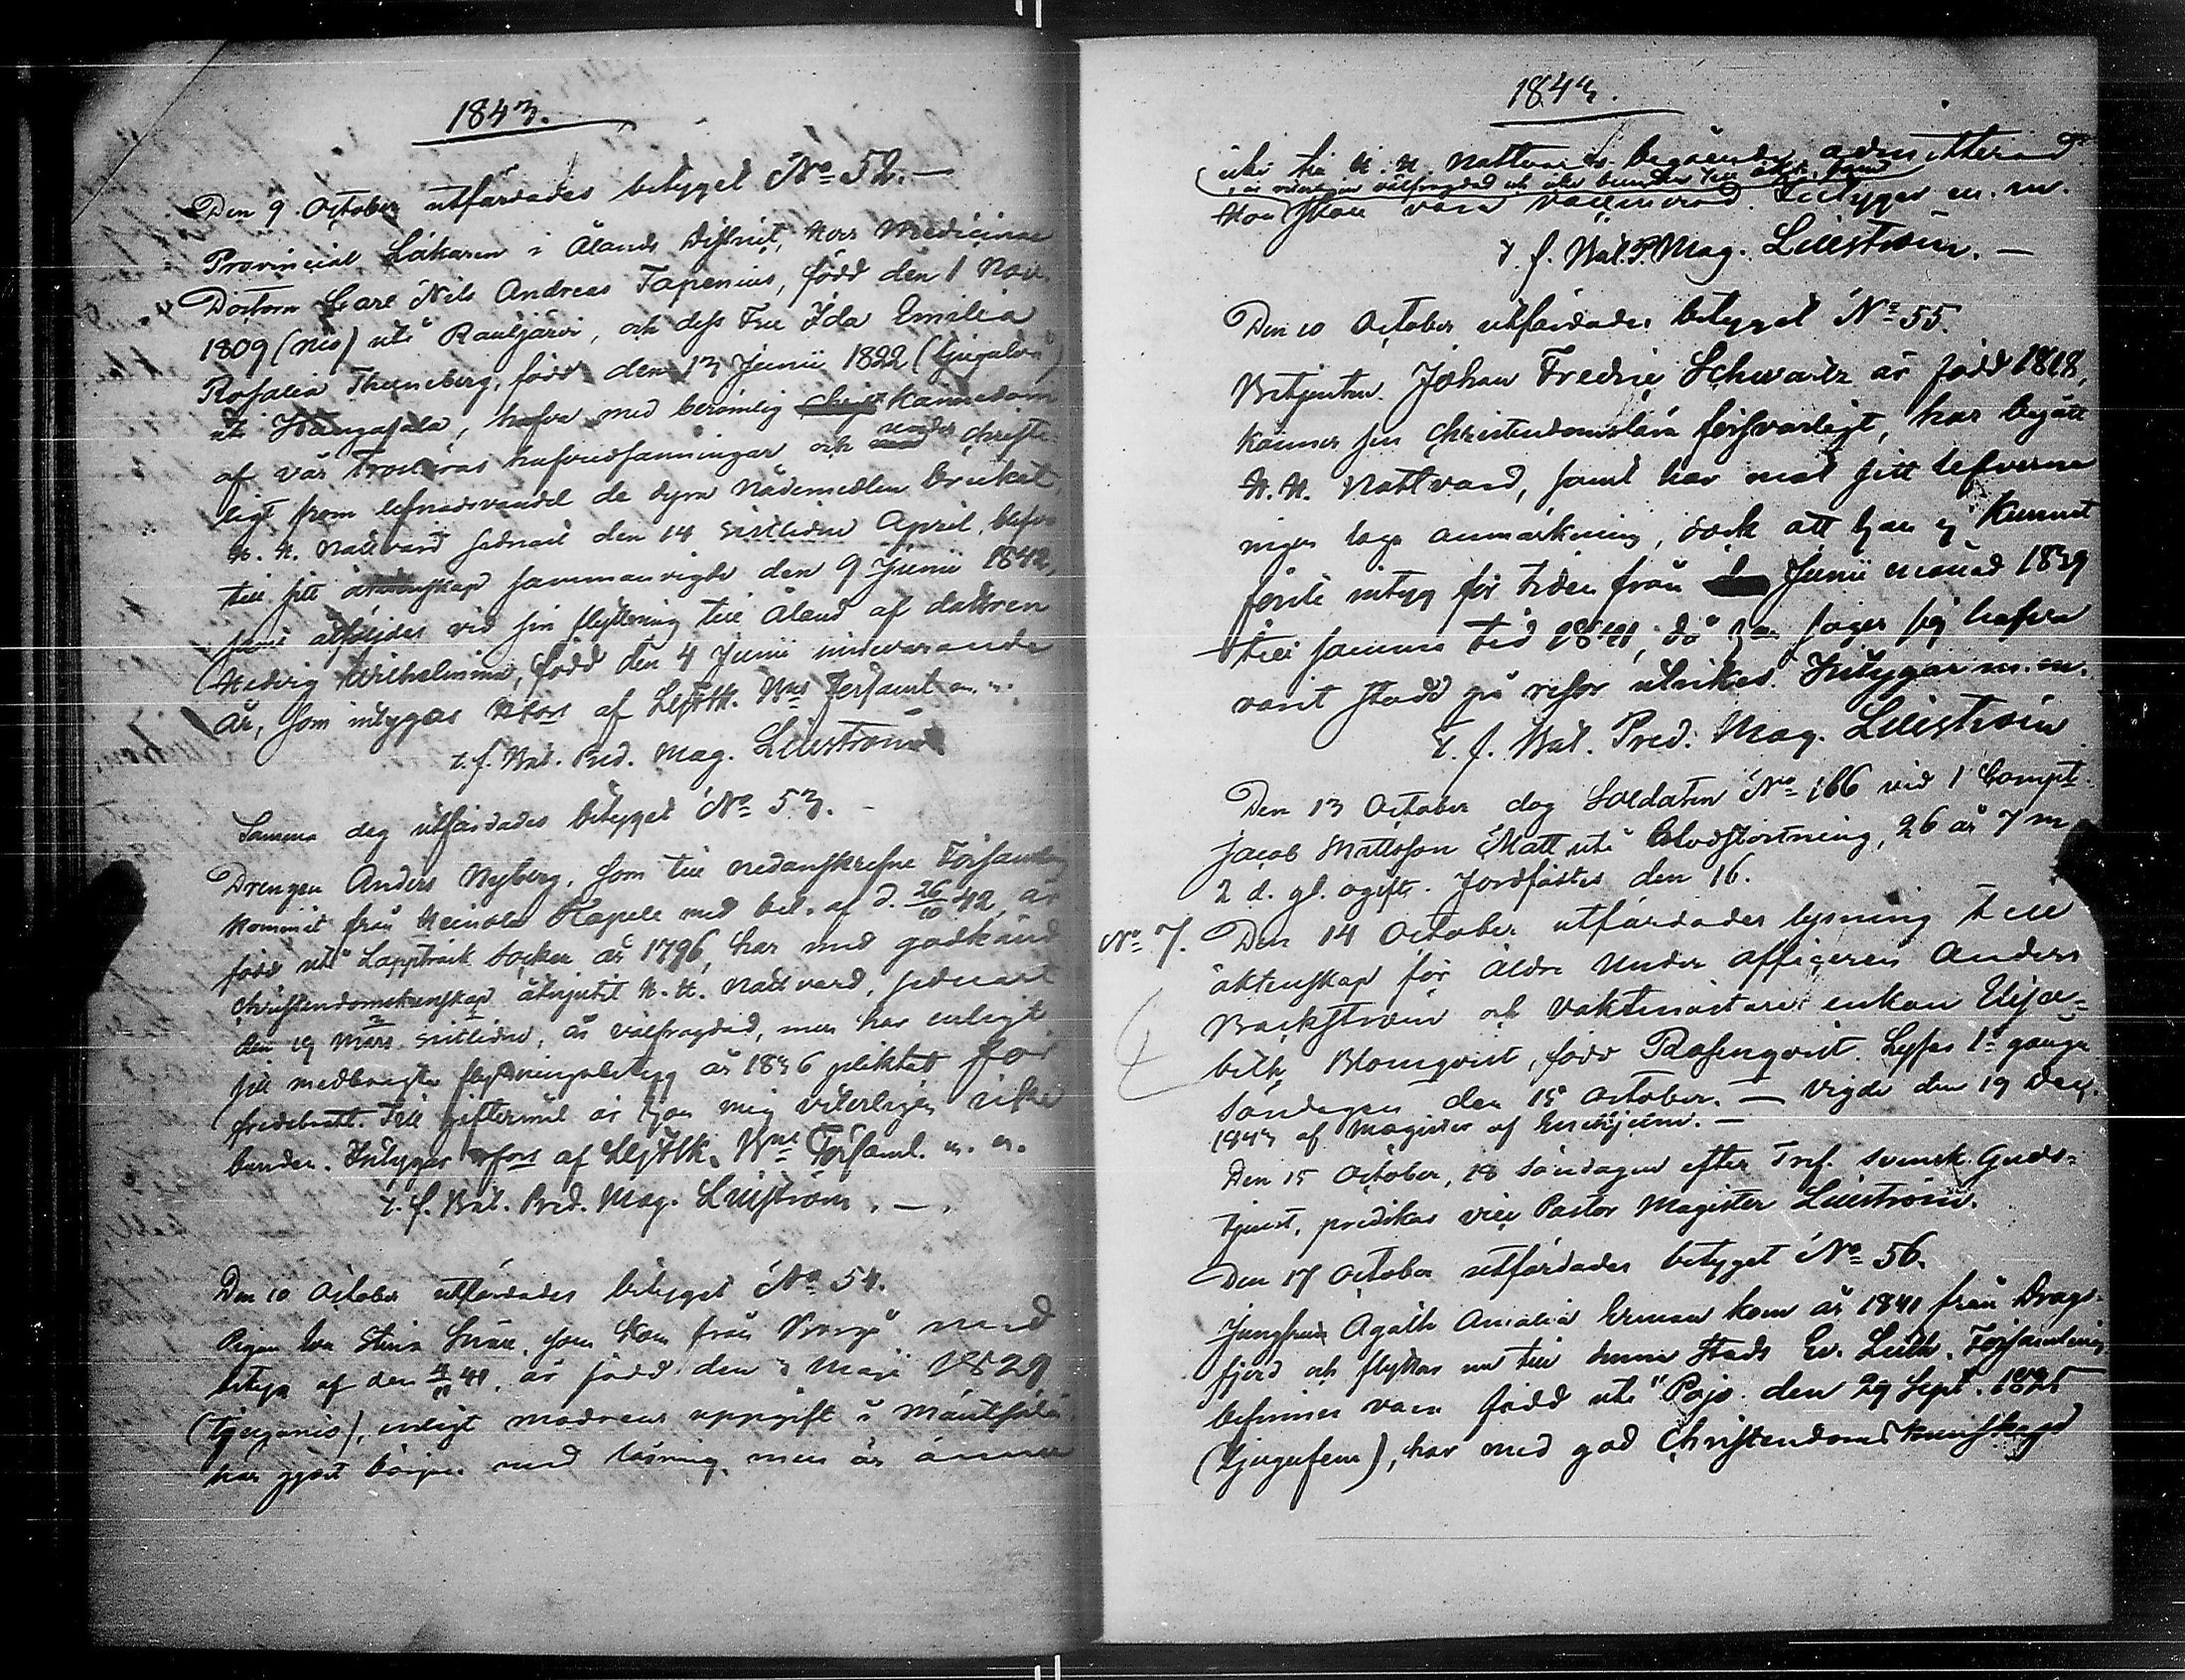 1843.
Den 9 October utfärdades betyget No 52. —
Provincial Läkaren i Ålands District, Herr Medicinae
Doctorn Carl Nils Andreas Tapenius, född den 1 Nov.
1809 (nio) uti Rautjärvi, och dess Fru Ida Emilia
Rosalia Thuneberg, född den 13 Junii 1822 (tjugutvå)
uti Kangasala, hafva med berömlig kännedom
af vår Trosläras hufvudsanningar och under christe-
ligt from lefnadsvandel de dyra Nådemedlen brukat,
H. H. Nattvard sednast den 14 sistlidne April, blefvo
till sitt äktenskap sammanvigde den 9 Junii 1842,
samt åtföljdes vid sin flyttning till Åland af dottren
Hedvig Wilhelmina, född den 4 Junii innevarande
år, som intygas H:fors af Lgftsk. Bns Församl. m. m.
t. f. Bat. Pred. Mag. Lilliström
Samma dag utfärdades betyget No 53. —
Drengen Anders Nyberg, som till nedanskrefne Församling
kommit från Heinola Kapell med bet. af d. 26/10 42, är
född uti Lappträsk Socken år 1796, har med godkänd
christendomskunskap åtnjutit H. H. Nattvard, sednast
den 19 Mars sistlidne, är välfrägdad, men har enligt
sitt medbragta flyttningsbetyg år 1836 pliktat för
fridsbrott. Till giftermål är han mig veterligen icke
bunden. Intygar H:fors af Lgftsk. Bns Församl. m. m.
t. f. Bat. Pred. Mag. Lilliström. —.
Den 10 October utfärdades betyget No 54.
Pigan Eva Stina Snäll, som kom från Borgå med
betyg af den 41, är född den 3 Maji 1829
(tjugunio), enligt modrens uppgift i Mäntsälä,
har gjort början med läsning, men är ännu
1843.
icke till H. H. Nattvards begående admitterad
, är välfrägdad och icke bunden till äktenskap
Hon skall vara vaccinerad. Intygar m. m.
t. f. Bat. P. Mag. Lilliström. —
Den 10 October utfärdades betyget No 55.
Betjenten Johan Fredric Schwartz är född 1818,
känner sin Christendomslära försvarligt, har begått
H. H. Nattvard, samt har med sitt lefverne
ingen laga anmärkning, dock att han ej kunnat
förete intyg för tiden från Junii månad 1839
till samma tid 1841, då han säger sig hafva
varit stadd på resor utrikes. Intygar m. m.
t. f. Bat. Pred. Mag. Lilliström
Den 13 October dog Soldaten No 166 vid 1 Compt.
Jacob Mattsson Matt uti Blodstörtning, 26 år 7 m
2 d. gl. ogift. Jordfästes den 16.
No 7. Den 14 October utfärdades lysning till
äktenskap för äldre Under officeren Anders
Backström och vaktmästare enkan Elisa-
beth Blomqvist, född Rosenqvist. Lyses 1a gången
Söndagen den 15 October. — Vigde den 19 Dec.
1843 af Magister af Enehjelm. —
Den 15 October, 18 söndagen efter Tref. svensk Guds-
tjenst, predikar vice Pastor Magister Lilliström.
Den 17 October utfärdades betyget No 56.
Jungfrun Agath Amalia Erman kom år 1841 från Drags-
fjerd och flyttar nu till denna Stads Ev. Luth. Församling,
befinnes vara född uti Pojo den 29 Sept. 1825
(tjugufem), har med god Christendomskunskap